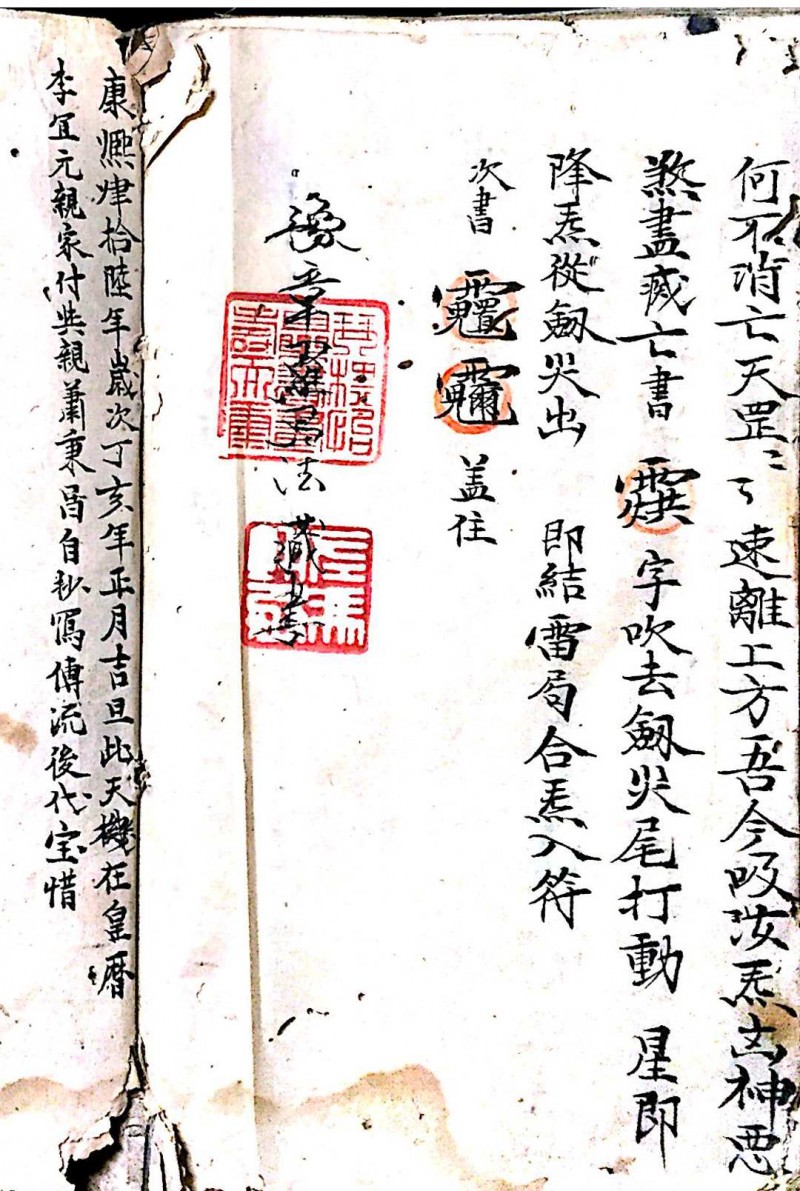 何不消亡天罡〻了速離上方吾今吸汝炁凶神恶
煞盡滅亡書 字吹去劔尖尾打動 星即
降炁從劔尖出 即結雷局合炁入符
次書 盖住
豫章 法 書
康熈肆拾陸年歲次丁亥年正月吉旦此天機在皇曆
李宜元親家付与親蕭秉昌自抄寫傳流後代宝惜